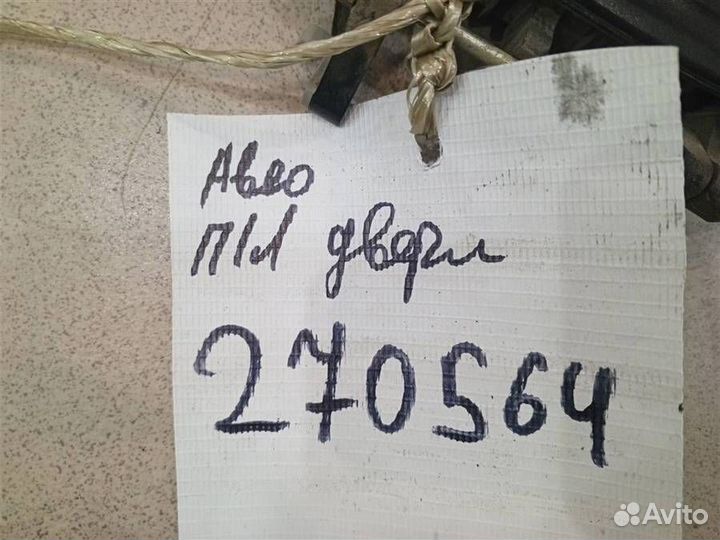 Авео
П/Л двери
270564
Avito